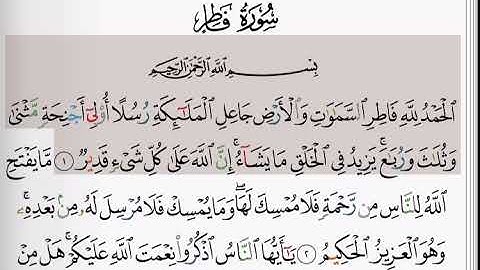 سُورَةُ فَاطِرٍ
بِسْمِ ٱللَّهِ ٱلرَّحْمَٰنِ ٱلرَّحِيمِ
ٱلْحَمْدُ لِلَّهِ فَاطِرِ ٱلسَّمَٰوَٰتِ وَٱلْأَرْضِ جَاعِلِ ٱلْمَلَٰٓئِكَةِ رُسُلًا أُو۟لِىٓ أَجْنِحَةٍ مَّثْنَىٰ
وَثُلَٰثَ وَرُبَٰعَ ۚ يَزِيدُ فِى ٱلْخَلْقِ مَا يَشَآءُ ۚ إِنَّ ٱللَّهَ عَلَىٰ كُلِّ شَىْءٍ قَدِيرٌ ١ مَّا يَفْتَحِ
ٱللَّهُ لِلنَّاسِ مِن رَّحْمَةٍ فَلَا مُمْسِكَ لَهَا ۖ وَمَا يُمْسِكْ فَلَا مُرْسِلَ لَهُۥ مِنۢ بَعْدِهِۦ ۚ
وَهُوَ ٱلْعَزِيزُ ٱلْحَكِيمُ ٢ يَٰٓأَيُّهَا ٱلنَّاسُ ٱذْكُرُوا۟ نِعْمَتَ ٱللَّهِ عَلَيْكُمْ ۚ هَلْ مِنْ